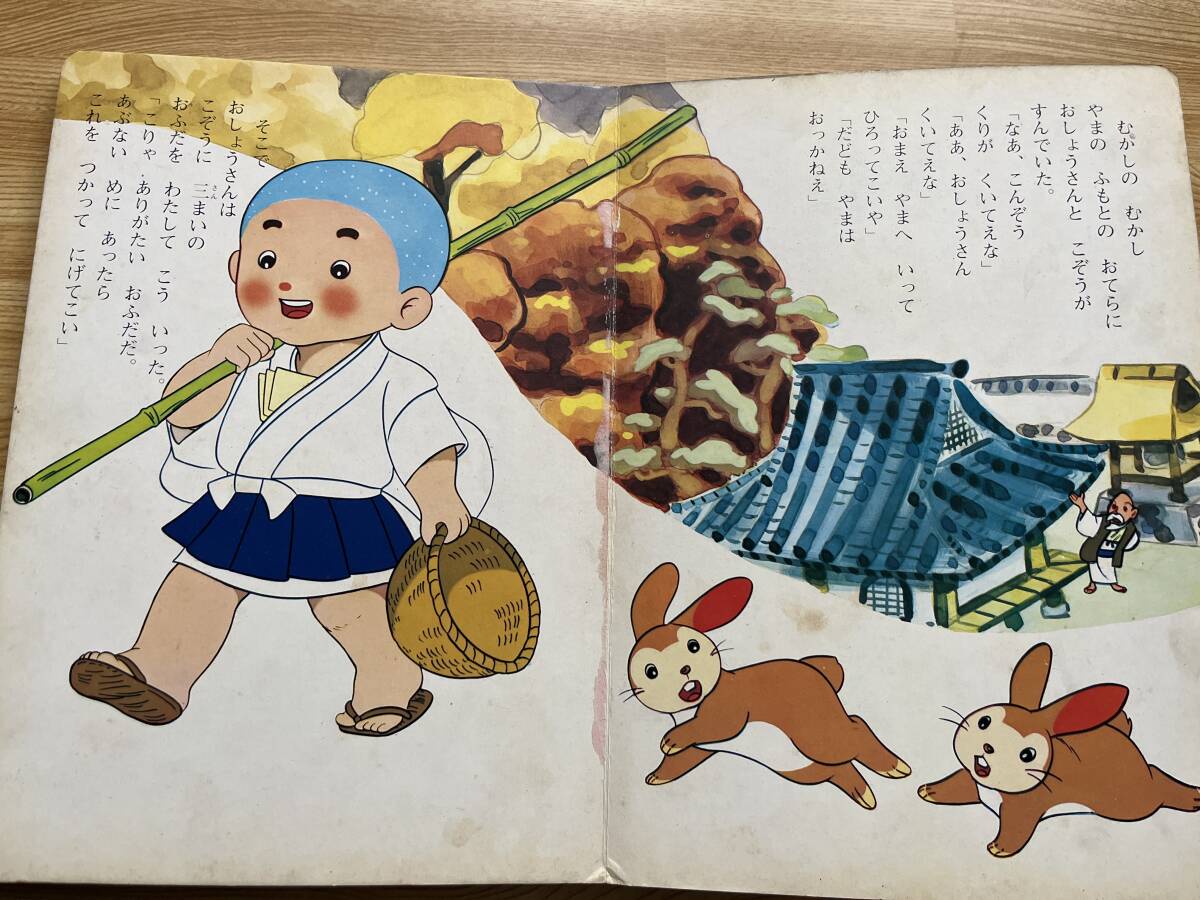 むかしの むかし
やまの ふもとの おてらに
おしょうさんと こぞうが
すんでいた。
「なあ、こんぞう
くりが くいてえな」
「ああ、おしょうさん
くいてえな」
「おまえ やまへ いって
ひろってこいや」
「だども やまは
おっかねえ」
そこで
おしょうさんは
こぞうに 三まいの
さん
おふだを わたして こう いった。
「こりゃ ありがたい おふだだ。
あぶない めに あったら
これを つかって にげてこい」